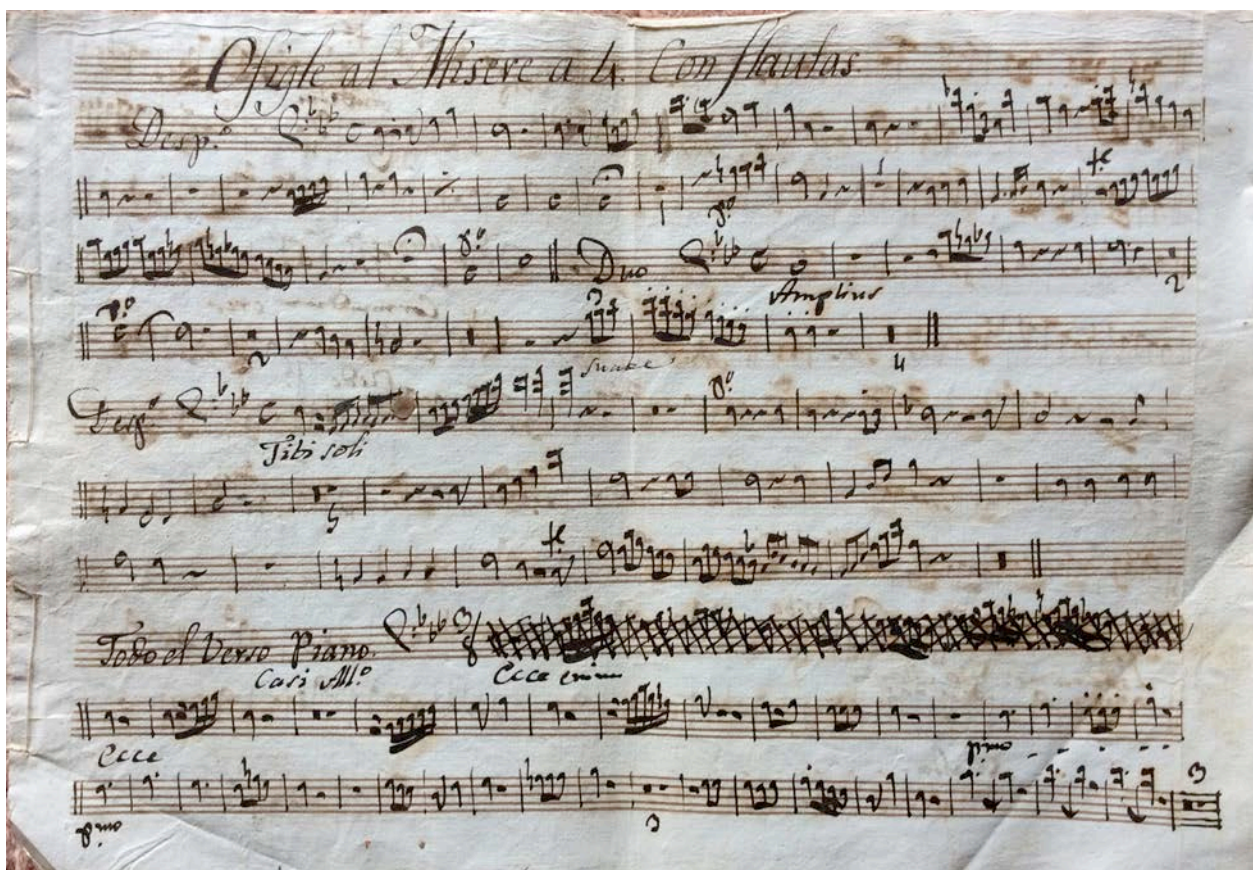 Ofigle al Misere a 4. Con flautas.
Desp.º
Duo
Amplius
2
2
suabe
4
Desp.º
Tibi soli
5
Todo el Verso Piano.
Casi All.º
Ecce enim
Ecce
pmo
3
pmo
3